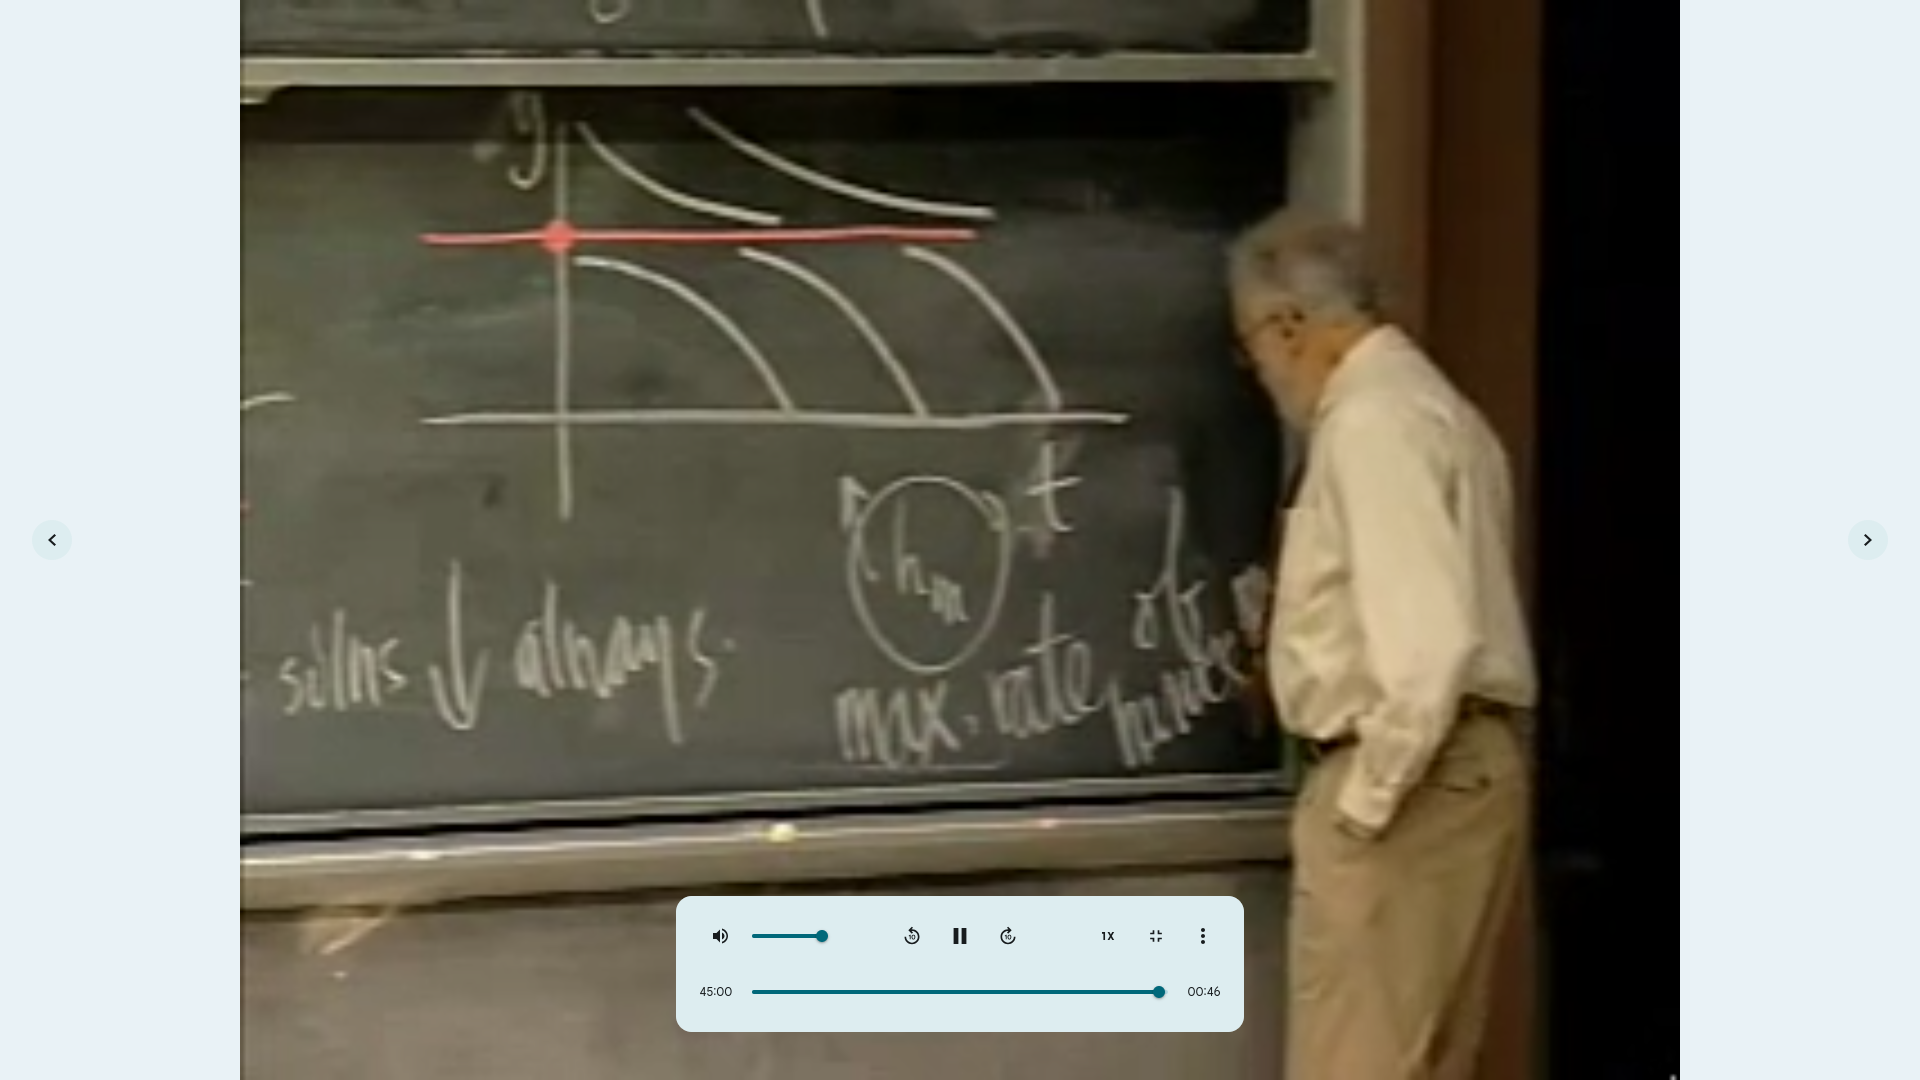 y
t
h_m
solns ↓ always.
max. rate of
1X
45:00 00:46